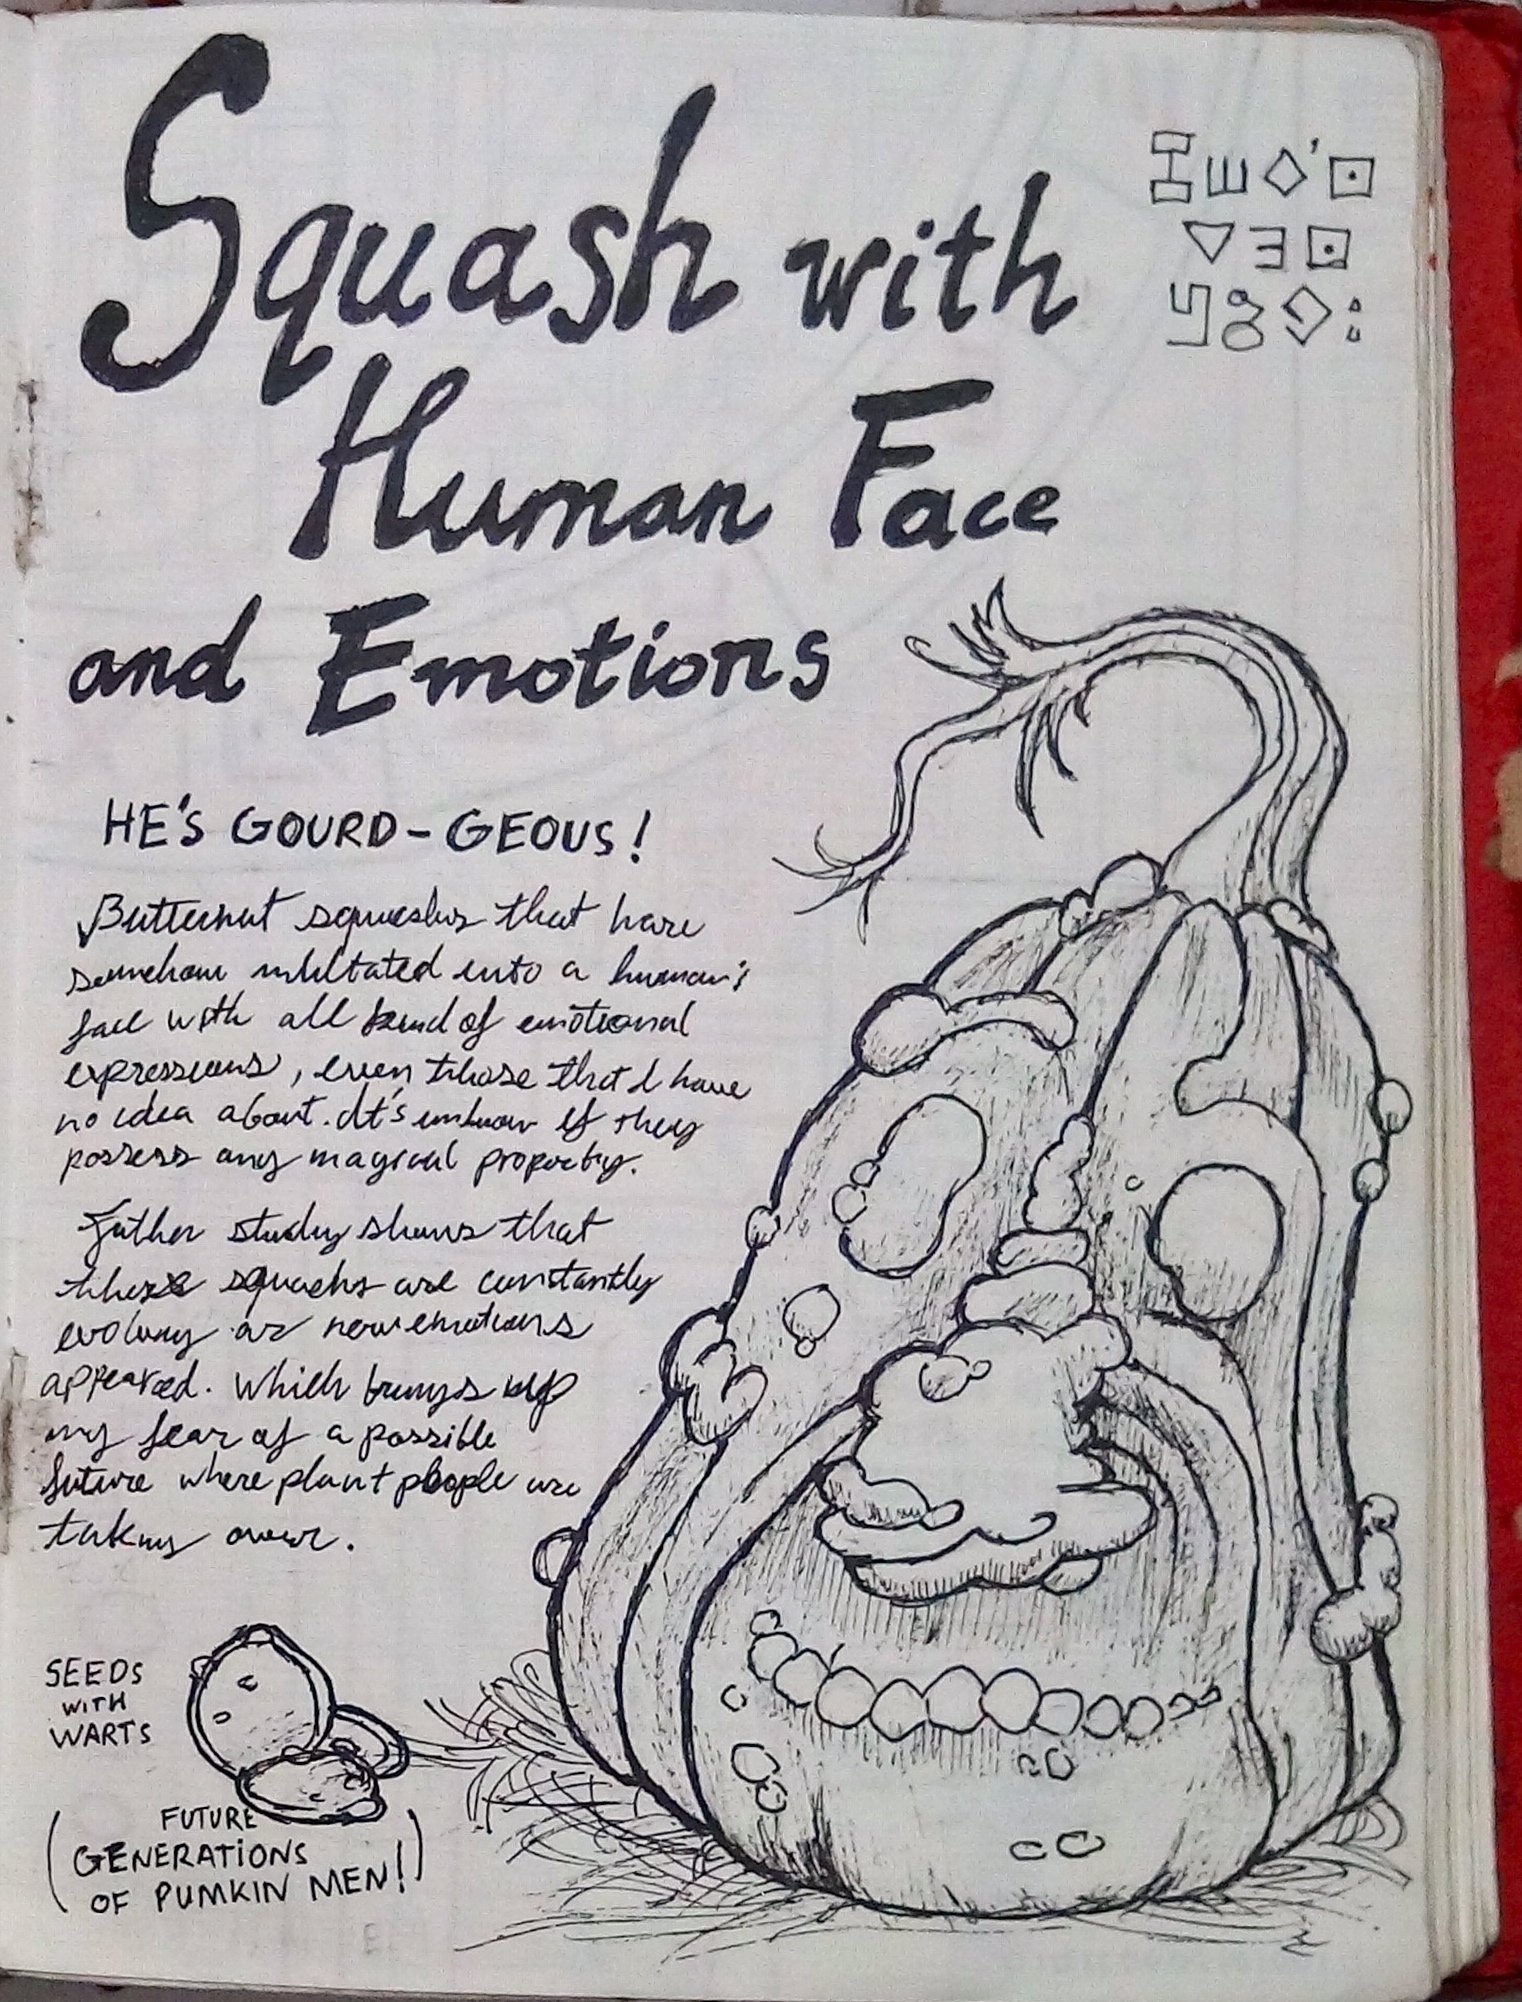 Squash with
Human Face
and Emotions
HE'S GOURD-GEOUS!
Butternut squashes that have
somehow infiltated into a human's
face with all kind of emotional
expressions, even those that I have
no idea about. It's unknow if they
possess any magical property.
Futher study shows that
these squashs are constantly
evolving as new emotions
appeared. Which brings up
my fear of a possible
future where plant people are
taking over.
SEEDS
WITH
WARTS
FUTURE
(GENERATIONS
OF PUMKIN MEN!)